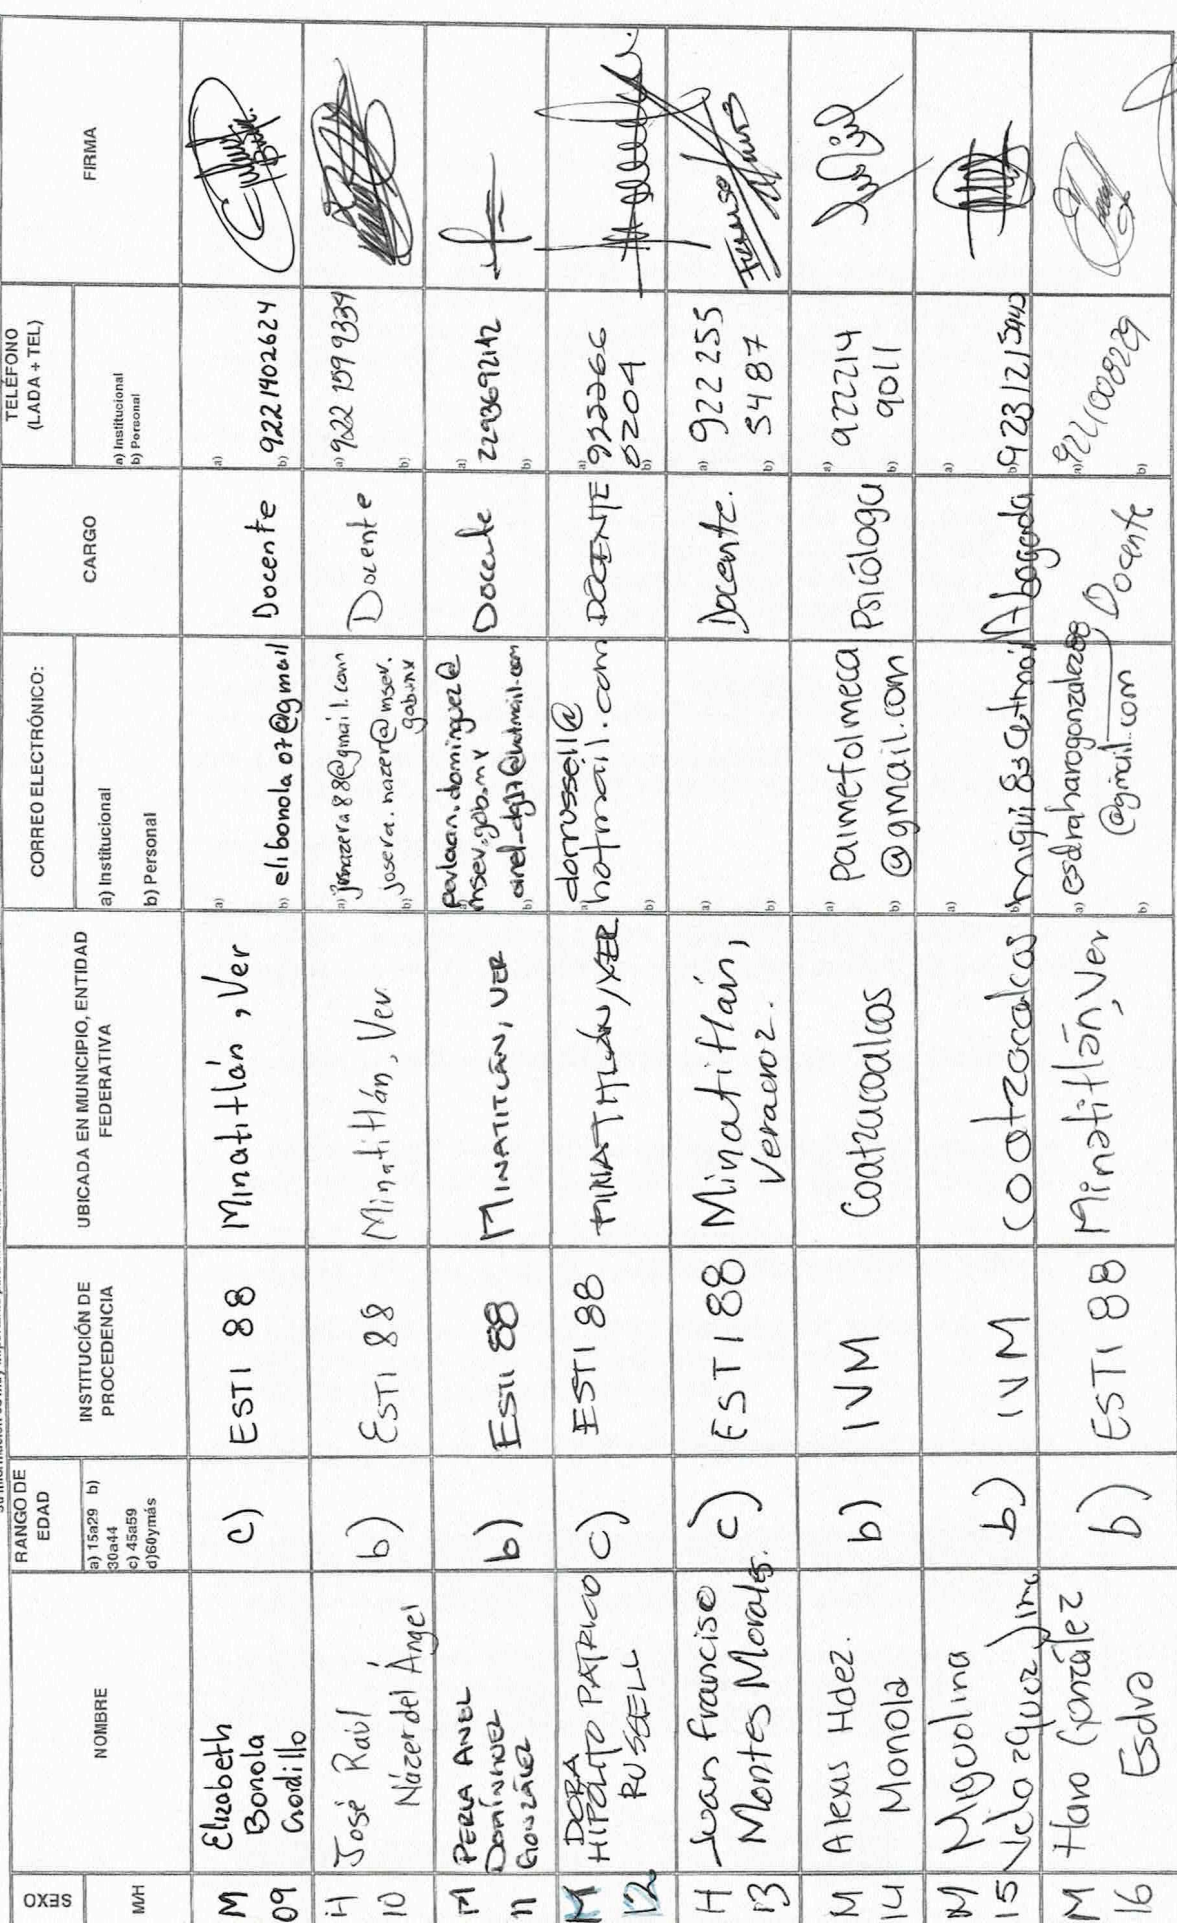 SEXO
M/H
NOMBRE
RANGO DE
EDAD
a) 15a29 b)
30a44
c) 45a59
d)60ymás
INSTITUCIÓN DE
PROCEDENCIA
UBICADA EN MUNICIPIO, ENTIDAD
FEDERATIVA
CORREO ELECTRÓNICO:
a) Institucional
b) Personal
CARGO
TELÉFONO
(LADA + TEL)
a) Institucional
b) Personal
FIRMA
M
09
Elizabeth
Bonola
Gordillo
c)
ESTI 88
Minatitlán, Ver
a)
b) elibonola07@gmail
Docente
a)
b) 9221402624
H
10
José Raúl
Názer del Ángel
b)
ESTI 88
Minatitlán, Ver.
a)
88@gmail.com
b) josera.nazer@msev.
gob.mx
Docente
a) 922 159 9334
b)
M
11
PERLA ANEL
DOMÍNGUEZ
GONZÁLEZ
b)
ESTI 88
MINATITLÁN, VER
a)
msev.gob.mx
b)
Docente
a) 2293692142
b)
M
12
DORA
HIPÓLITO PATRICIO
RUSSELL
c)
ESTI 88
MINATITLÁN, VER
a) dorrussell@
hotmail.com
b)
DOCENTE
a) 922266
0204
b)
H
13
Juan Franciso
Montes Morales.
c)
ESTI 88
Minatitlán,
Veracruz.
a)
b)
Docente.
a) 922 255
5487
b)
M
14
Alexis Hdez.
Monola
b)
IVM
Coatzacoalcos
a) palmetolmeca
@gmail.com
b)
Psicóloga
a) 922214
9011
b)
M
15
Miguelina
Velazquez Jime
b)
IVM
Coatzacoalcos
a)
b)
Abogada
a)
b)
M
16
Haro González
Esdra
b)
ESTI 88
Minatitlán, Ver
a) esdraharogonzalez08
@gmail.com
b)
Docente
a) 9221000229
b)